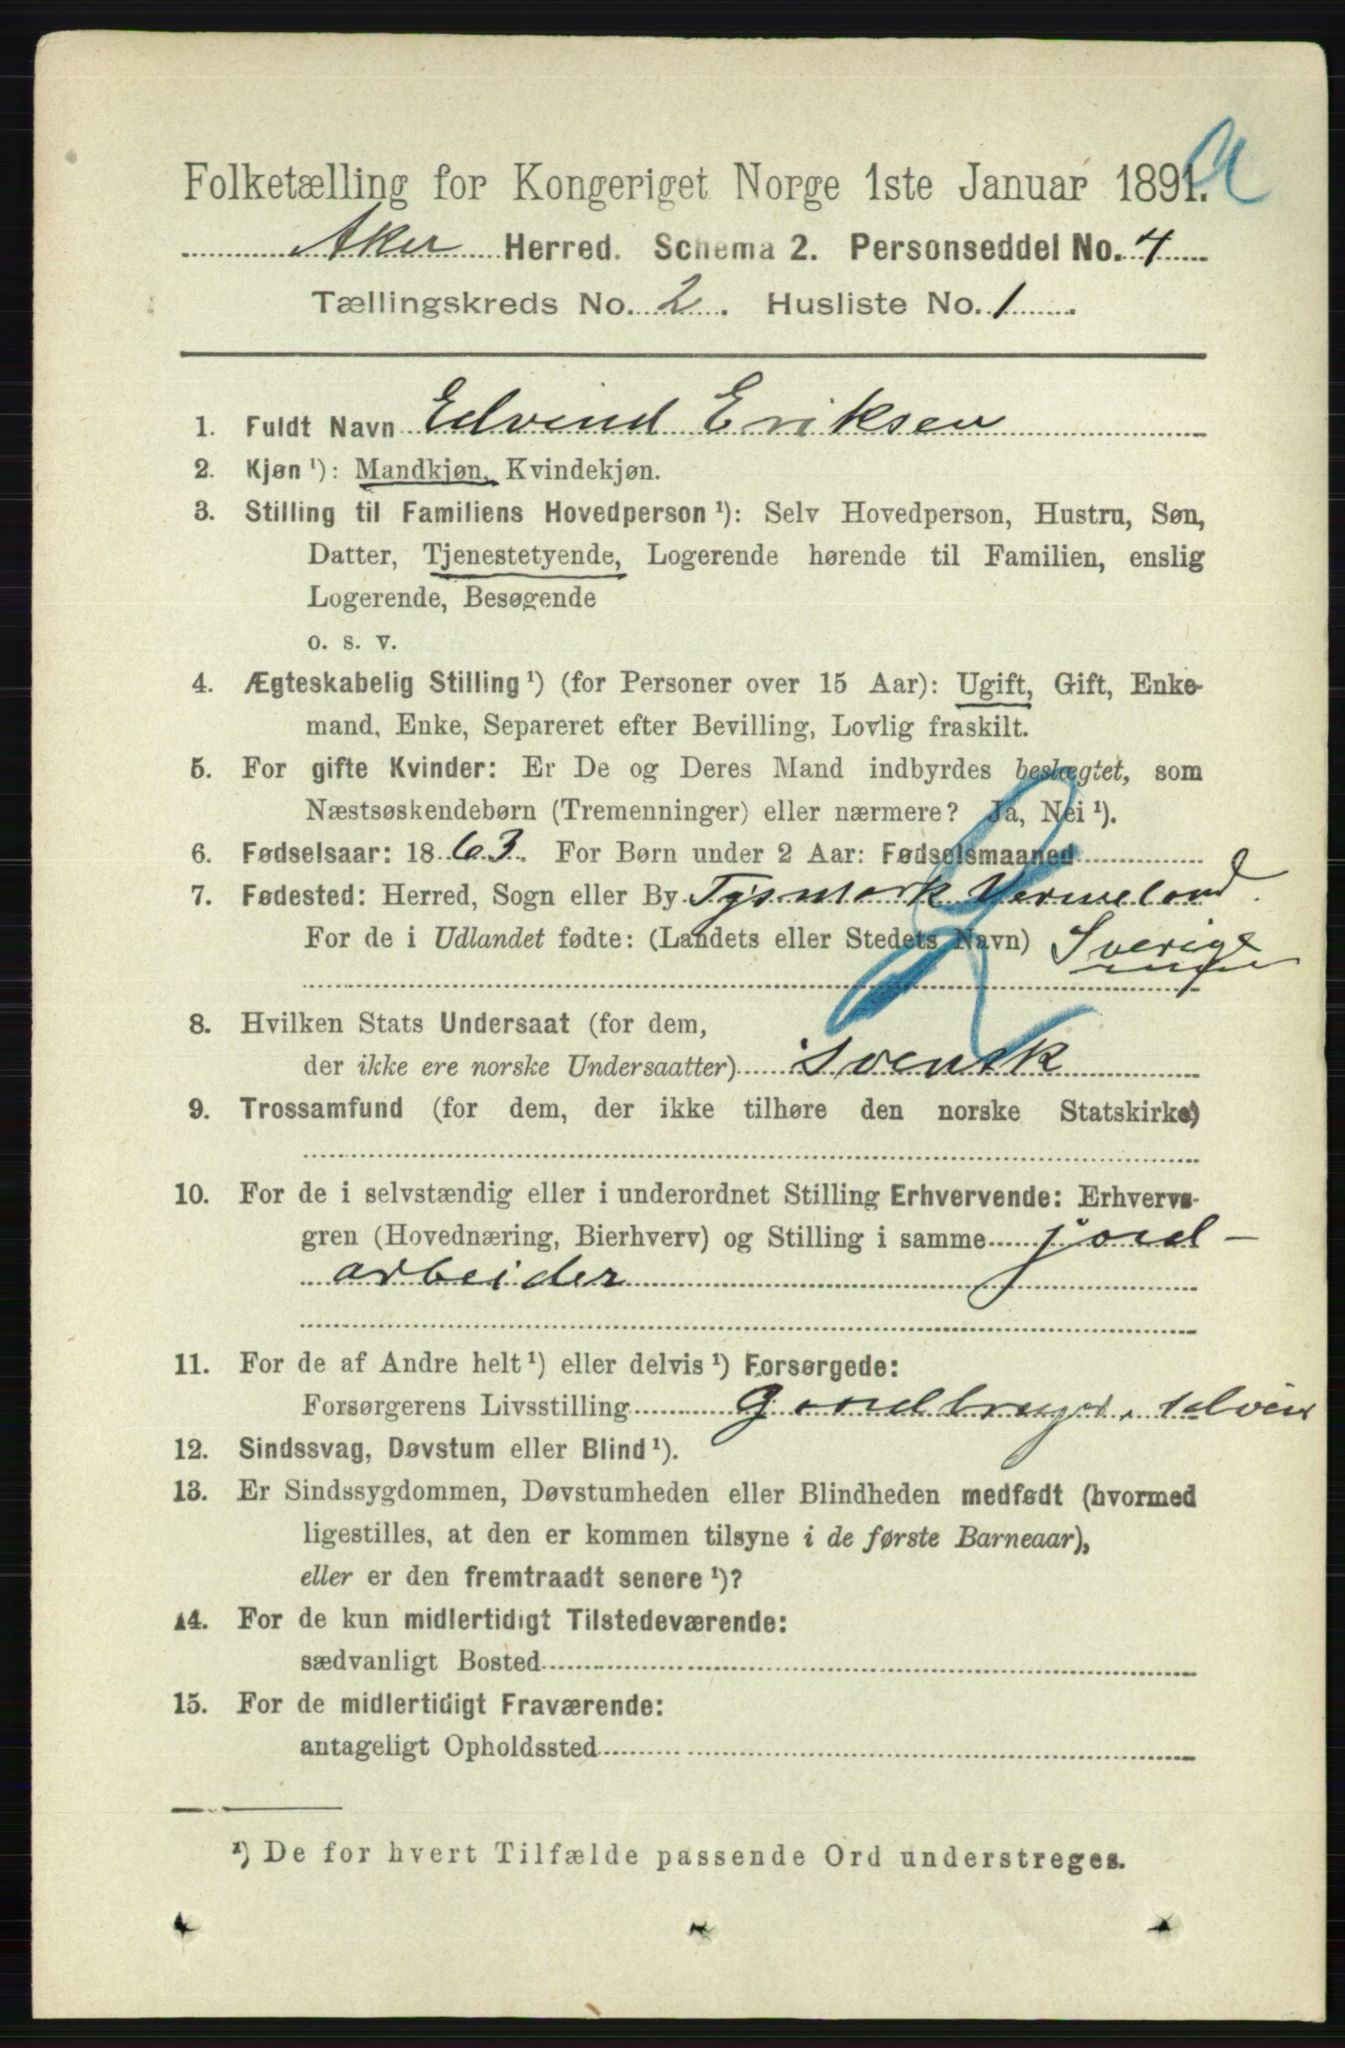 Folketælling for Kongeriget Norge 1ste Januar 1891.
Aker Herred. Schema 2. Personseddel No. 4
Tællingskreds No. 2. Husliste No. 1.
1. Fuldt Navn Edvind Eriksen
2. Kjøn ¹): Mandkjøn, Kvindekjøn.
3. Stilling til Familiens Hovedperson ¹): Selv Hovedperson, Hustru, Søn,
Datter, Tjenestetyende, Logerende hørende til Familien, enslig
Logerende, Besøgende
o. s. v.
4. Ægteskabelig Stilling ¹) (for Personer over 15 Aar): Ugift, Gift, Enke-
mand, Enke, Separeret efter Bevilling, Lovlig fraskilt.
5. For gifte Kvinder: Er De og Deres Mand indbyrdes beslægtet, som
Næstsøskendebørn (Tremenninger) eller nærmere? Ja, Nei ¹).
6. Fødselsaar: 1863. For Børn under 2 Aar: Fødselsmaaned
7. Fødested: Herred, Sogn eller By Tysmark Vermeland.
For de i Udlandet fødte: (Landets eller Stedets Navn) Sverige
8. Hvilken Stats Undersaat (for dem,
der ikke ere norske Undersaatter) Svensk
9. Trossamfund (for dem, der ikke tilhøre den norske Statskirke)
10. For de i selvstændig eller i underordnet Stilling Erhvervende: Erhvervs-
gren (Hovednæring, Bierhverv) og Stilling i samme jord-
arbeider
11. For de af Andre helt ¹) eller delvis ¹) Forsørgede:
Forsørgerens Livsstilling
12. Sindssvag, Døvstum eller Blind ¹).
13. Er Sindssygdommen, Døvstumheden eller Blindheden medfødt (hvormed
ligestilles, at den er kommen tilsyne i de første Barneaar),
eller er den fremtraadt senere ¹)?
14. For de kun midlertidigt Tilstedeværende:
sædvanligt Bosted
15. For de midlertidigt Fraværende:
antageligt Opholdssted
¹) De for hvert Tilfælde passende Ord understreges.